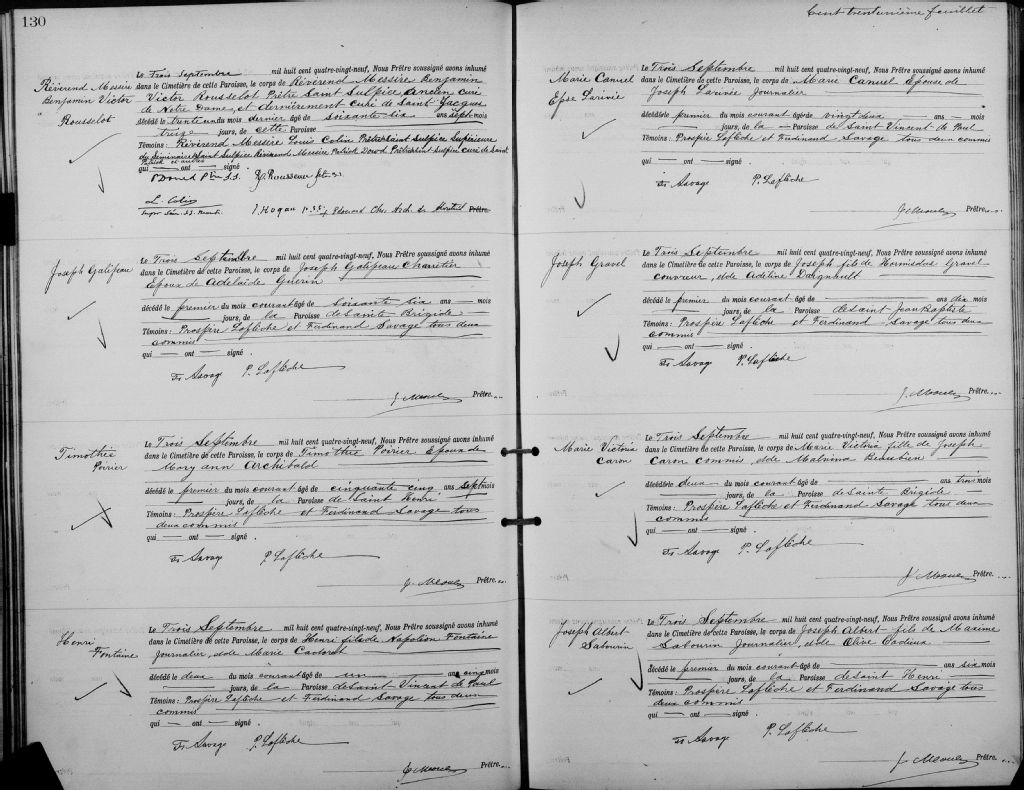 130
Révérend Messire
Benjamin Victor
Rousselot
Le Trois Septembre mil huit cent quatre-vingt-neuf, Nous Prêtre soussigné avons inhumé
dans le Cimetière de cette Paroisse, le corps de Révérend Messire Benjamin
Victor Rousselot Prêtre Saint Sulpice, ancien curé
de Notre Dame, et dernièrement curé de Saint Jacques
décédé le trente un du mois dernier âgé de soixante six ans sept mois
treize jours, de cette Paroisse
Témoins : Révérend Messire Louis Colin Prêtre Saint Sulpice Supérieur
du Séminaire Saint Sulpice Révérend Messire Patrick Dowd Prêtre Saint Sulpice curé de Saint
Patrick et autres
qui — ont — signé .
P Dowd Ptre S.S.
L. Colin
J. Hogan + Edouard Chs Arch. de Montréal Prêtre
Joseph Galipeau
Le Trois Septembre mil huit cent quatre-vingt-neuf, Nous Prêtre soussigné avons inhumé
dans le Cimetière de cette Paroisse, le corps de Joseph Galipeau Charretier
Epoux de Adelaïde Guérin
décédé le premier du mois courant âgé de soixante six ans — mois
— jours, de la Paroisse de Sainte Brigide —
Témoins : Prospère Laflèche et Ferdinand Savage tous deux
commis
qui — ont — signé .
Fs Savage P. Laflèche
Prêtre
Timothée
Poirier
Le Trois Septembre mil huit cent quatre-vingt-neuf, Nous Prêtre soussigné avons inhumé
dans le Cimetière de cette Paroisse, le corps de Timothée Poirier Epoux de
Mary ann Archibald
décédé le premier du mois courant âgé de cinquante cinq ans sept mois
— jours, de la Paroisse de Saint Henri
Témoins : Prospère Laflèche et Ferdinand Savage tous
deux commis
qui — ont — signé .
Fs Savage P. Laflèche
Prêtre
Henri
Fontaine
Le Trois Septembre mil huit cent quatre-vingt-neuf, Nous Prêtre soussigné avons inhumé
dans le Cimetière de cette Paroisse, le corps de Henri fils de Napoléon Fontaine
Journalier, & de Marie
décédé le deux du mois courant âgé de — un — ans cinq mois
— jours, de la Paroisse de Saint Vincent de Paul
Témoins : Prospère Laflèche et Ferdinand Savage tous deux
commis
qui — ont — signé .
Fs Savage P. Laflèche
Prêtre
Cent trentunième feuillet
Marie Canuel
Epse Larivée
Le Trois Septembre mil huit cent quatre-vingt-neuf, Nous Prêtre soussigné avons inhumé
dans le Cimetière de cette Paroisse, le corps de Marie Canuel Epouse de
Joseph Larivée Journalier
décédé le premier du mois courant âgé de vingt deux — ans — mois
— jours, de la — Paroisse de Saint Vincent de Paul
Témoins : Prospère Laflèche et Ferdinand Savage tous deux commis
qui — ont — signé .
Fs Savage P. Laflèche
Prêtre
Joseph Gravel
Le Trois Septembre mil huit cent quatre-vingt-neuf, Nous Prêtre soussigné avons inhumé
dans le Cimetière de cette Paroisse, le corps de Joseph fils de Hormisdas Gravel
couvreur, & de Adeline Daignault
décédé le premier du mois courant âgé de — ans dix mois
— jours, de la Paroisse de Saint Jean Baptiste
Témoins : Prospère Laflèche et Ferdinand Savage tous deux
commis
qui — ont — signé .
Fs Savage P. Laflèche
Prêtre
Marie Victoria
Caron
Le Trois Septembre mil huit cent quatre-vingt-neuf, Nous Prêtre soussigné avons inhumé
dans le Cimetière de cette Paroisse, le corps de Marie Victoria fille de Joseph
Caron commis, & de Malvina Beaubien
décédé le deux du mois courant âgé de — ans trois mois
— jours, de la Paroisse de Sainte Brigide
Témoins : Prospère Laflèche et Ferdinand Savage tous deux
commis
qui — ont — signé .
Fs Savage P. Laflèche
Prêtre
Joseph Albert
Sabourin
Le Trois Septembre mil huit cent quatre-vingt-neuf, Nous Prêtre soussigné avons inhumé
dans le Cimetière de cette Paroisse, le corps de Joseph Albert fils de Maxime
Sabourin Journalier, & de Elive Cadieux
décédé le premier du mois courant âgé de — ans six mois
— jours, de la Paroisse de Saint Henri —
Témoins : Prospère Laflèche et Ferdinand Savage tous
deux commis
qui — ont — signé .
Fs Savage P. Laflèche
Prêtre